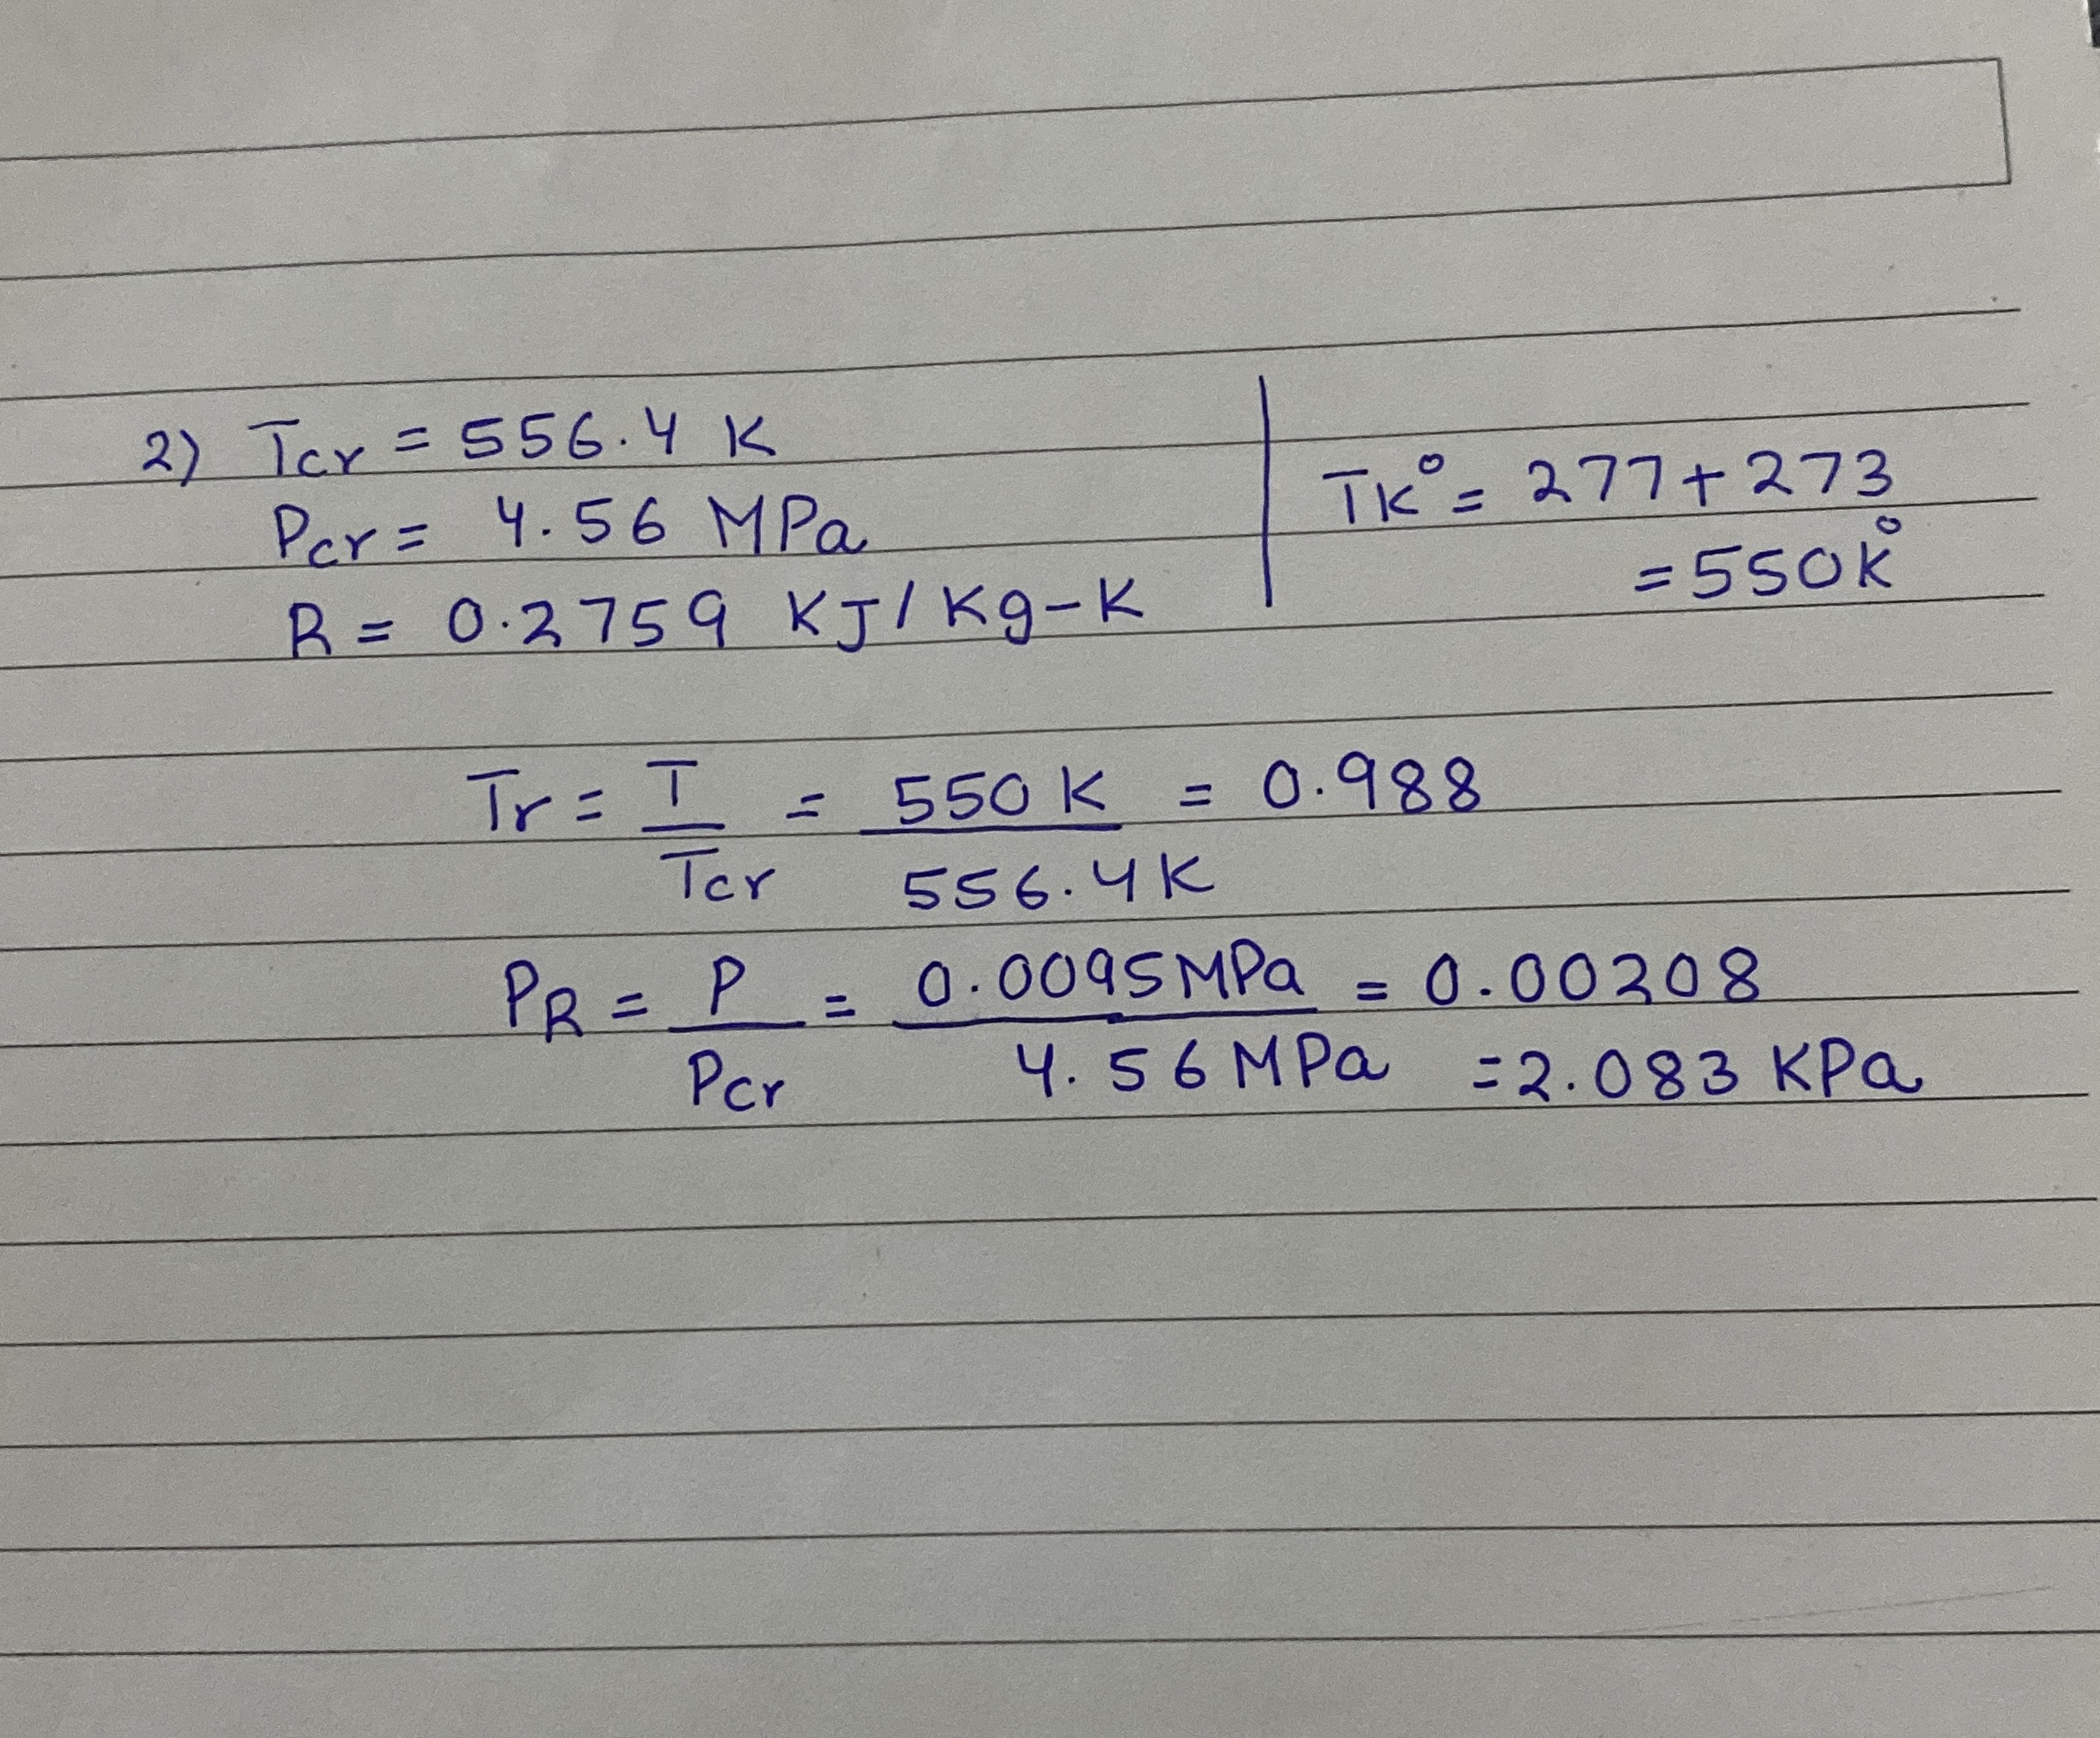 2) Tcr = 556.4 K
Pcr = 4.56 MPa
R = 0.2759 KJ/Kg-K
TK° = 277+273
= 550K°
Tr = T/Tcr = 550 K/556.4K = 0.988
PR = P/Pcr = 0.0095MPa/4.56 MPa = 0.00208
= 2.083 KPa